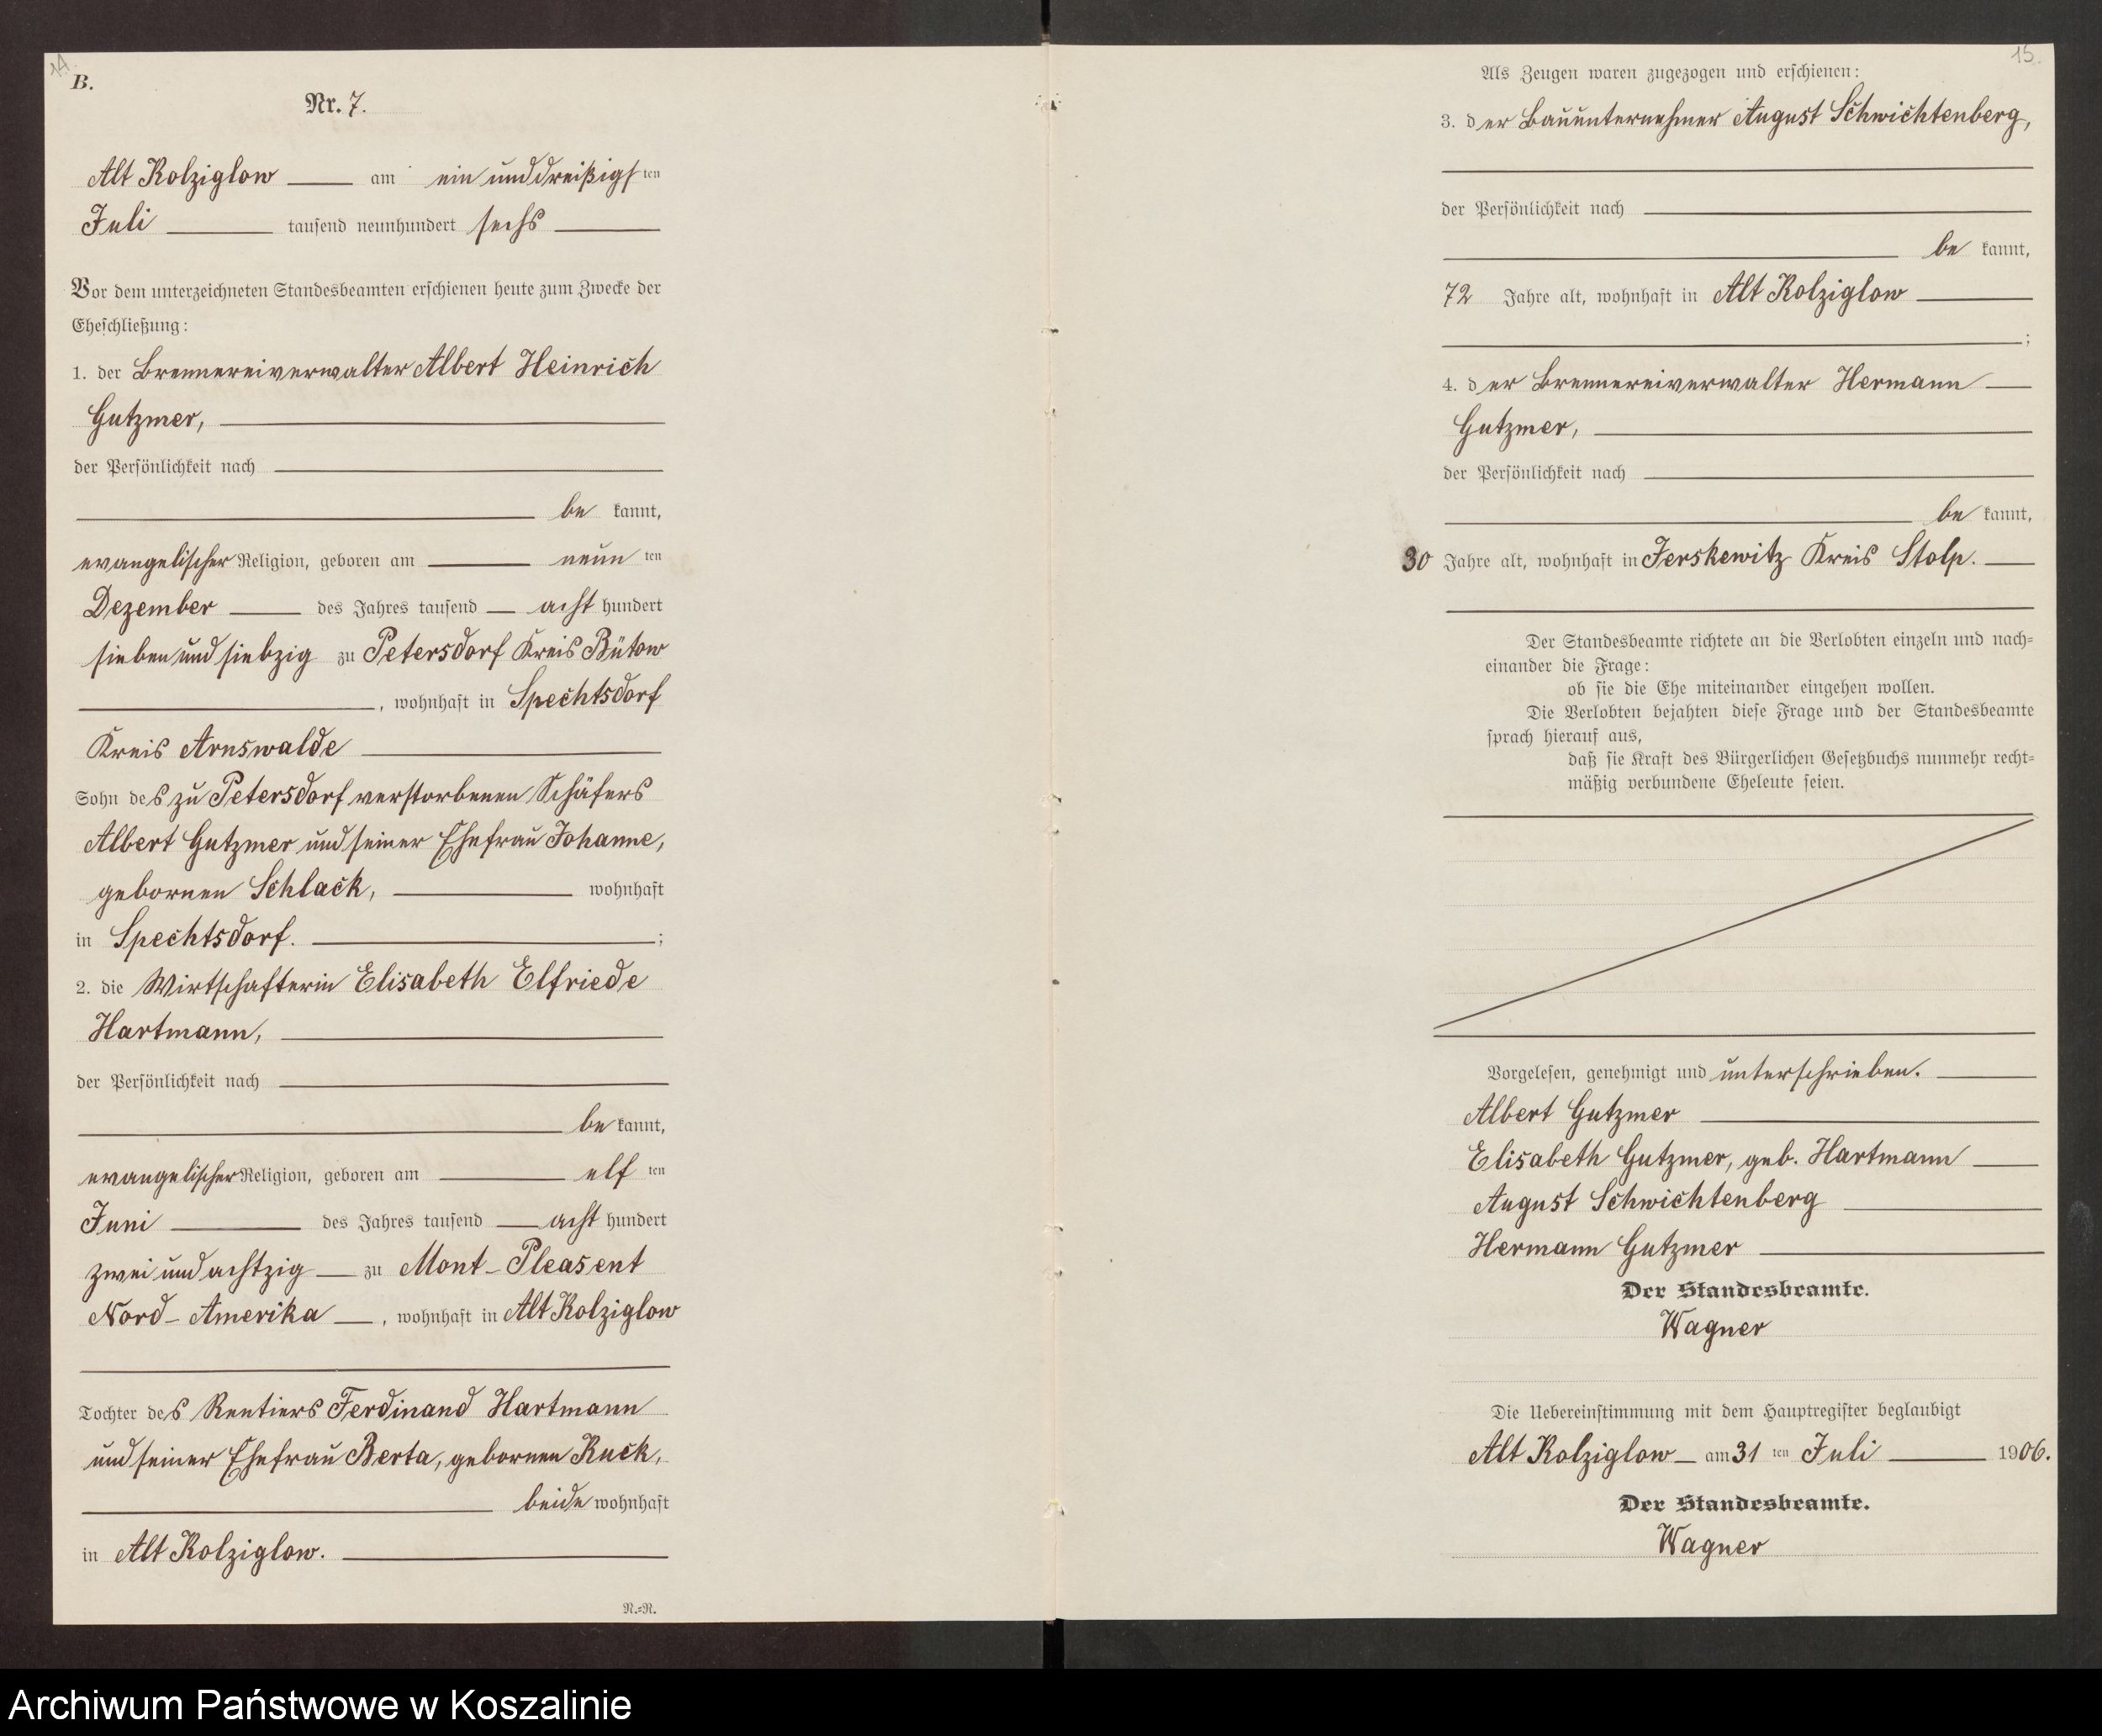 14.
B.
Nr. 7.
Alt Kolziglow am ein und dreißigsten
Juli tausend neunhundert sechs
Vor dem unterzeichneten Standesbeamten erschienen heute zum Zwecke der
Eheschließung:
1. der Brennereiverwalter Albert Heinrich
Gutzmer,
der Persönlichkeit nach
be kannt,
evangelischer Religion, geboren am neun ten
Dezember des Jahres tausend acht hundert
sieben und siebzig zu Petersdorf Kreis Bütow
, wohnhaft in Spechtsdorf
Kreis Arnswalde
Sohn des zu Petersdorf verstorbenen Schäfers
Albert Gutzmer und seiner Ehefrau Johanne,
gebornen Schlack, wohnhaft
in Spechtsdorf. ;
2. die Wirtschafterin Elisabeth Elfriede
Hartmann,
der Persönlichkeit nach
be kannt,
evangelischer Religion, geboren am elf ten
Juni des Jahres tausend acht hundert
zwei und achtzig zu Mont-Pleasent
Nord-Amerika , wohnhaft in Alt Kolziglow
Tochter des Rentiers Ferdinand Hartmann
und seiner Ehefrau Berta, gebornen Ruck,
beide wohnhaft
in Alt Kolziglow.
N.=R.
15.
Als Zeugen waren zugezogen und erschienen:
3. der Bauunternehmer August Schwichtenberg,
der Persönlichkeit nach
be kannt,
72 Jahre alt, wohnhaft in Alt Kolziglow
;
4. der Brennereiverwalter Hermann
Gutzmer,
der Persönlichkeit nach
be kannt,
30 Jahre alt, wohnhaft in Jerskewitz Kreis Stolp.
Der Standesbeamte richtete an die Verlobten einzeln und nach=
einander die Frage:
ob sie die Ehe miteinander eingehen wollen.
Die Verlobten bejahten diese Frage und der Standesbeamte
sprach hierauf aus,
daß sie Kraft des Bürgerlichen Gesetzbuchs nunmehr recht=
mäßig verbundene Eheleute seien.
Vorgelesen, genehmigt und unterschrieben.
Albert Gutzmer
Elisabeth Gutzmer, geb. Hartmann
August Schwichtenberg
Hermann Gutzmer
Der Standesbeamte.
Wagner
Die Uebereinstimmung mit dem Hauptregister beglaubigt
Alt Kolziglow am 31 ten Juli 1906.
Der Standesbeamte.
Wagner
Archiwum Państwowe w Koszalinie